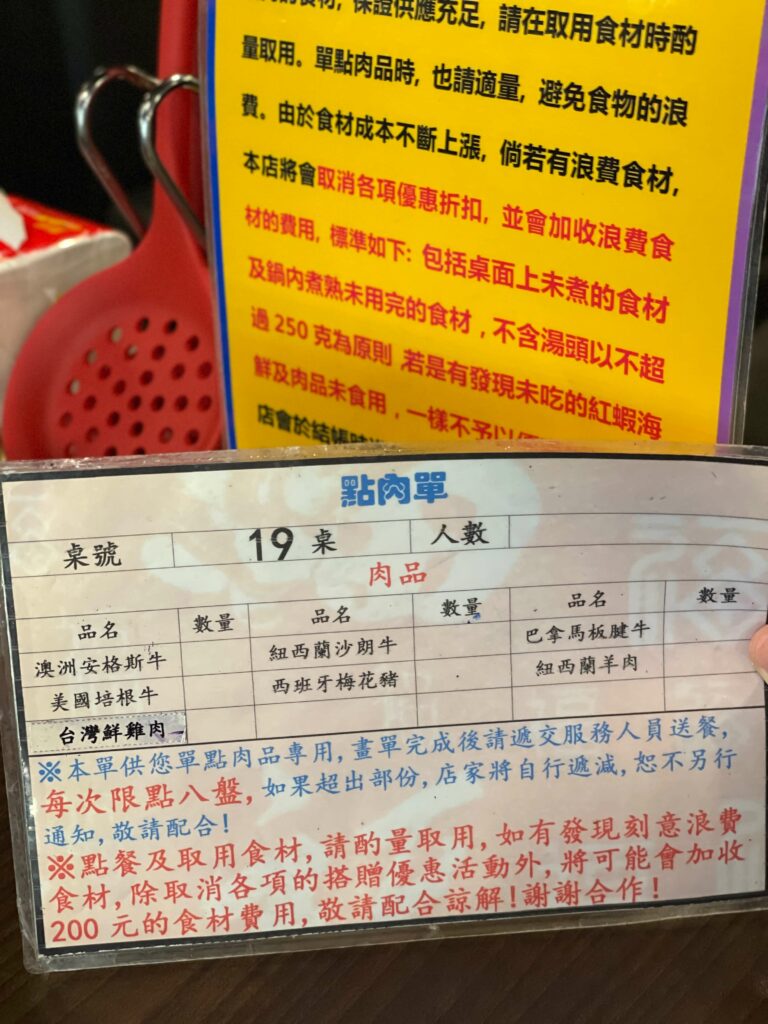 的食材, 保證供應充足, 請在取用食材時酌
量取用。單點肉品時, 也請適量, 避免食物的浪
費。由於食材成本不斷上漲, 倘若有浪費食材,
本店將會取消各項優惠折扣, 並會加收浪費食
材的費用, 標準如下: 包括桌面上未煮的食材
及鍋內煮熟未用完的食材, 不含湯頭以不超
過 250 克為原則 若是有發現未吃的紅蝦海
鮮及肉品未食用, 一樣不予以
店會於結帳時
點肉單
桌號 19 桌 人數
肉品
品名 數量 品名 數量 品名 數量
澳洲安格斯牛 紐西蘭沙朗牛 巴拿馬板腱牛
美國培根牛 西班牙梅花豬 紐西蘭羊肉
台灣鮮雞肉
※本單供您單點肉品專用, 畫單完成後請遞交服務人員送餐,
每次限點八盤, 如果超出部份, 店家將自行遞減, 恕不另行
通知, 敬請配合!
※點餐及取用食材, 請酌量取用, 如有發現刻意浪費
食材, 除取消各項的搭贈優惠活動外, 將可能會加收
200 元的食材費用, 敬請配合諒解!謝謝合作!